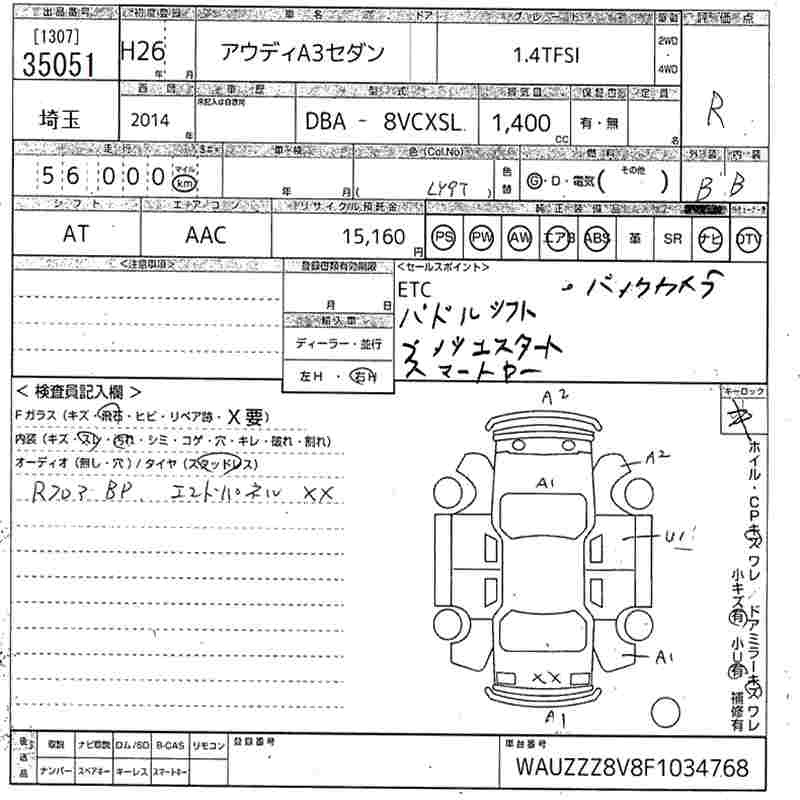 出品番号 初度登録 車名 ドア グレード 車歴 評価点
[1307]
35051 H26 年 月 アウディA3セダン 1.4TFSI 2WD ・ 4WD R
埼玉 2014 年 未記入は自家用 型式 DBA - 8VCXSL 排気量 1,400 CC 保証書 有・無 定員 名
走行 車検 色(Col.No) 燃料 外装 内装
56000 マイル km 年 月 ( LY9T ) 色替 G・D・電気( その他 ) B B
シフト エアコン リサイクル預託金 純正装備品
AT AAC 15,160 円 PS PW AW エアB ABS 革 SR ナビ DTV
<注意事項> 登録書類有効期限 <セールスポイント>
月 日 ETC ・バックカメラ
輸入車 パドルシフト
ディーラー・並行 プッシュスタート
左H・右H スマートキー
<検査員記入欄> キーロック
Fガラス(キズ・飛石・ヒビ・リペア跡・X要)
内装(キズ・スレ・汚れ・シミ・コゲ・穴・キレ・破れ・割れ)
オーディオ(無し・穴)/タイヤ(スタッドレス)
Rフロア BP. エンドパネル XX
A2
A2
A1
U1
A1
XX
A1
ホイル・CPキズワレ/ドアミラーキズワレ
小キズ有 小U有 補修有
後送品 取説 ナビ取説 ロム/SD B-CAS リモコン 登録番号 車台番号
ナンバー スペアキー キーレス スマートキー WAUZZZ8V8F1034768